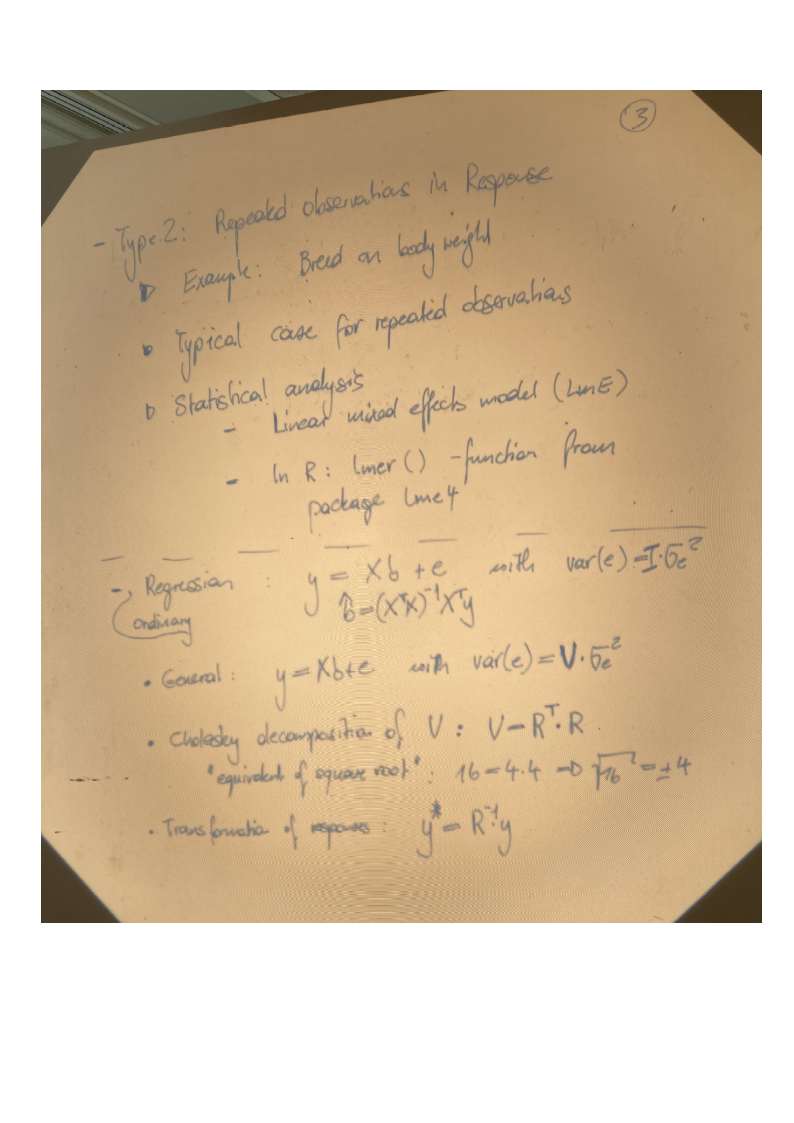 3
- Type 2: Repeated observations in Response
Example: Breed on body weight
Typical case for repeated observations
Statistical analysis
- Linear mixed effects model (LmE)
- In R: lmer() -function from
package lme4
- Regression : y = Xb + e with var(e) = I·σₑ²
ordinary b̂ = (XᵀX)⁻¹Xᵀy
• General: y = Xb+e with var(e) = V·σₑ²
• Cholesky decomposition of V : V = Rᵀ·R
"equivalent of square root": 16 = 4·4 ⇒ √16 = ±4
• Transformation of responses: y* = R⁻¹·y